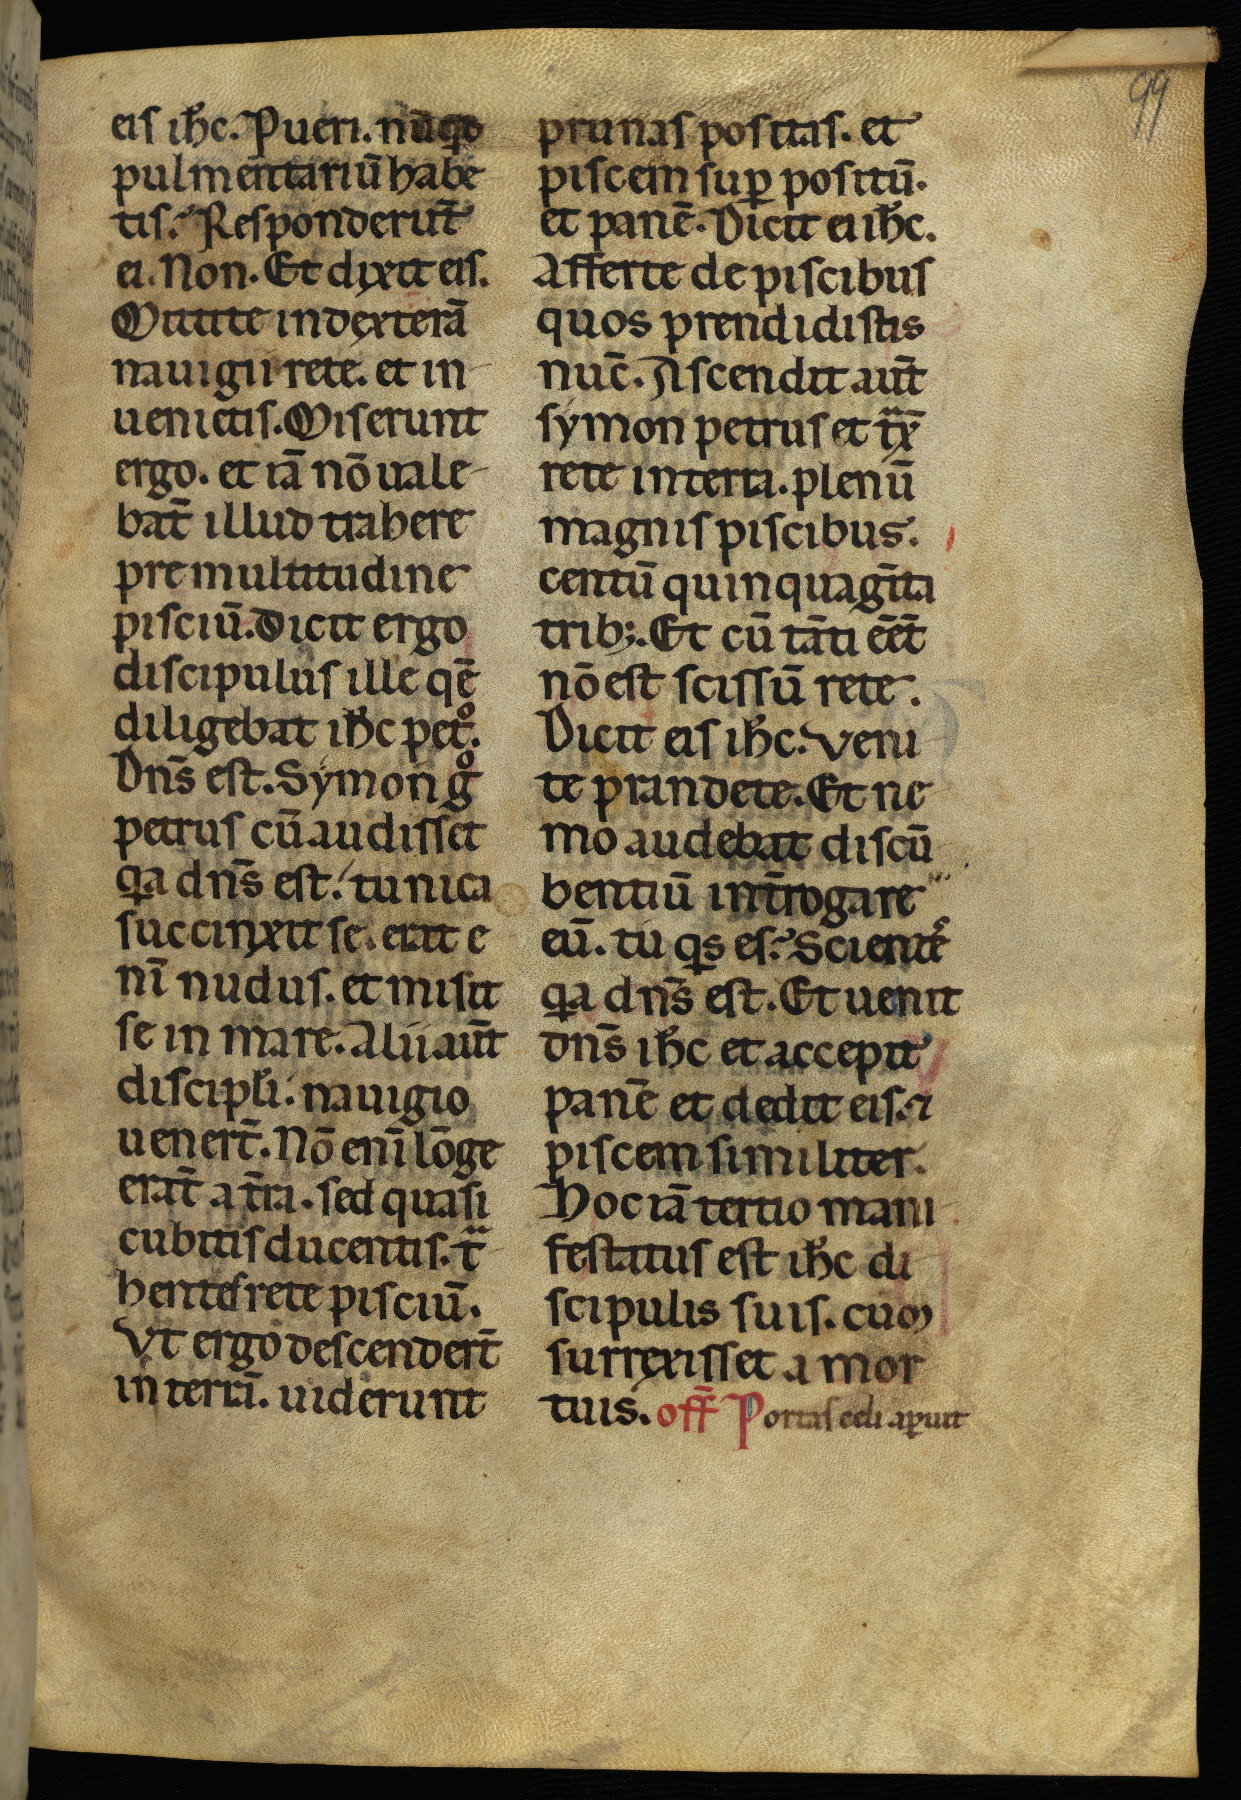 99
eis ih̄c. Pueri. nūq̄d
pulmentariū habe
tis? Responderūt
ei. Non. Et dixit eis.
Mittite in dexterā
nauigii rete. et in
uenietis. Miserunt
ergo. et iā nō uale
bat̄ illud trahere
pre multitudine
pisciū. Dicit ergo
discipulus ille quē
diligebat ih̄c petͦ.
Dn̄s est. Symon gͦ
petrus cū audisset
qa dn̄s est. tunica
succinxit se. erat e
nī nudus. et misit
se in mare. Alii aūt
discipl̄i. nauigio
uenert̄. Nō enī lōge
erāt a t̄ra. sed quasi
cubitis ducentis. tͣ
hentes rete pisciū.
Vt ergo descendert̄
in terrā. uiderunt
prunas positas. et
piscem suꝑ positū.
et panē. Dicit ei ih̄c.
Afferte de piscibus
quos prendidistis
nūc. Ascendit aūt
symon petrus et tͣx̄
rete in terra. plenū
magnis piscibus.
centū quinquagīta
tribꝫ. Et cū tāti eēt̄
nō est scissū rete.
Dicit eis ih̄c. Veni
te prandete. Et ne
mo audebat discū
bentiū int̄rogare
eū. tu qs es? Scientēs
qa dn̄s est. Et uenit
dn̄s ih̄c et accepit
panē et dedit eis. ⁊
piscem similiter.
Hoc iā tertio mani
festatus est ih̄c di
scipulis suis. cum
surrexisset a mor
tuis. off̄ Portas celi aꝑuit